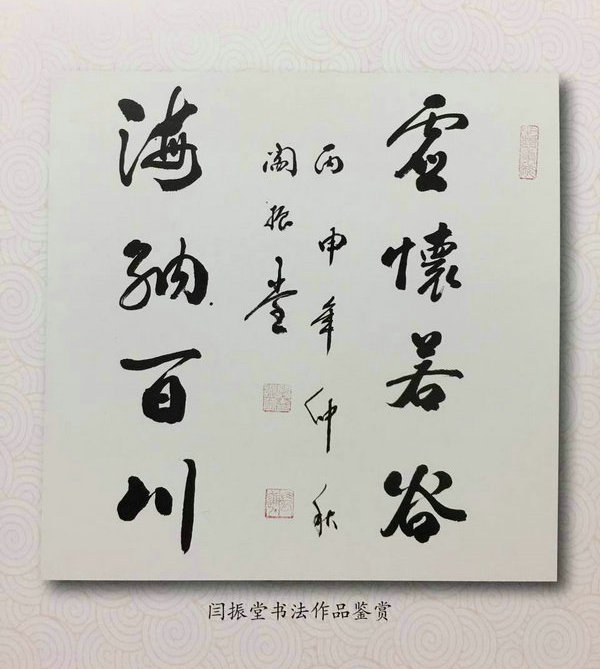 虚懷若谷
丙申年仲秋
閻振堂
海納百川
闫振堂书法作品鉴赏